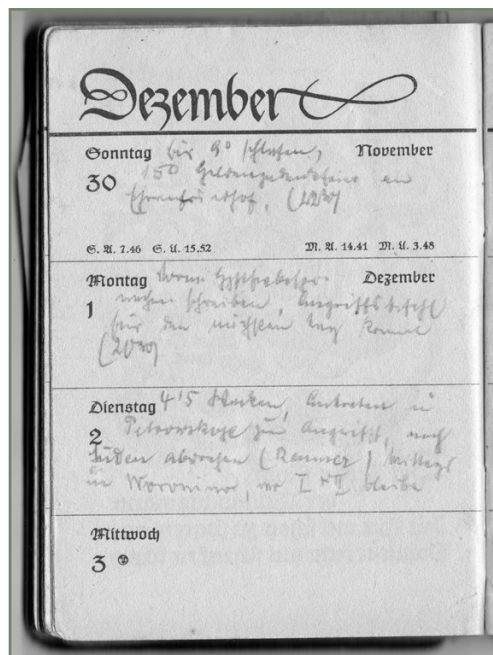 Dezember
Sonntag bis 9⁰ schlafen, November
30 15⁰ Heldengedenkfeier am
Ehrenfriedhof. (22³⁰)
S. A. 7.46 S. U. 15.52 M. A. 14.41 M. U. 3.48
Montag Dezember
1 schreiben, Angriffsbefehl
für den nächsten Tag kommt
(20³⁰)
Dienstag 4¹5 Wecken, Antreten in
2 zum Angriff, nach
Süden mittags
in Woronino, wo I + II bleibt
Mittwoch
3